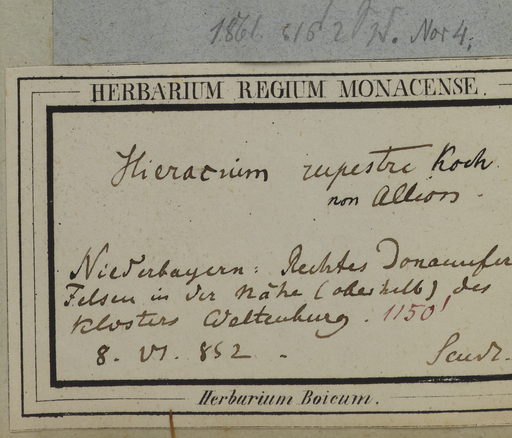 1861
Nor 4.
HERBARIUM REGIUM MONACENSE.
Hieracium rupestre Koch
non Allion.
Niederbayern: Rechtes Donauufer
Felsen in der Nähe (oberhalb) des
Klosters Weltenburg. 1150'
8. VI. 852.
Herbarium Boicum.